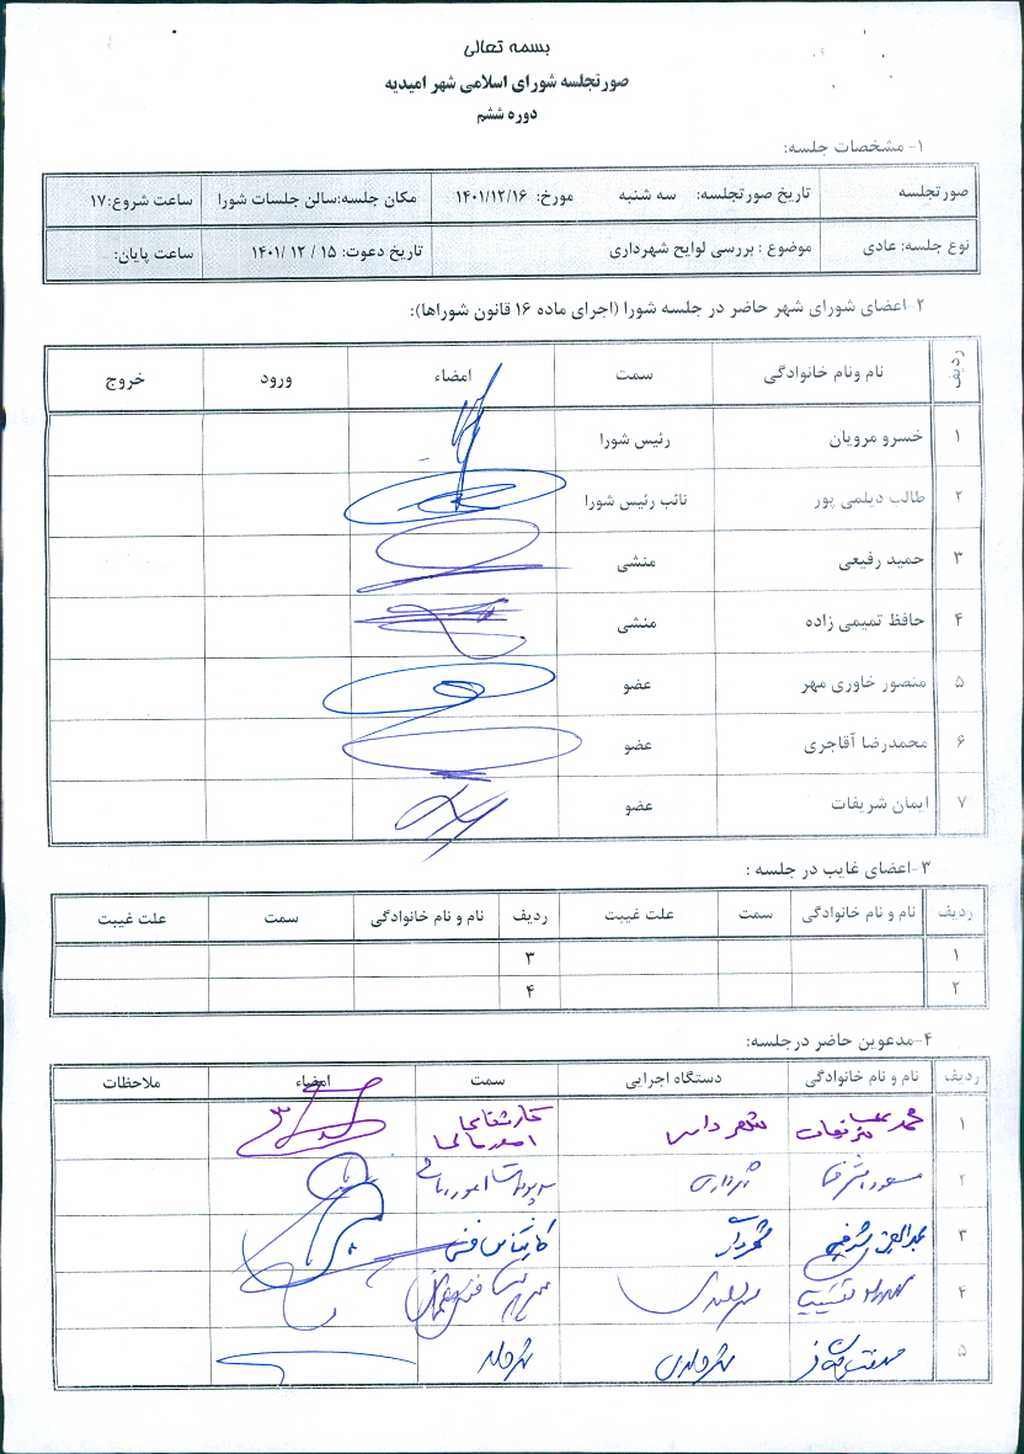 بسمه تعالی
صورتجلسه شورای اسلامی شهر امیدیه
دوره ششم
۱- مشخصات جلسه:
صورتجلسه تاریخ صورتجلسه: سه شنبه مورخ: ۱۴۰۱/۱۲/۱۶ مکان جلسه:سالن جلسات شورا ساعت شروع:۱۷
نوع جلسه: عادی موضوع : بررسی لوایح شهرداری تاریخ دعوت: ۱۵ / ۱۲ /۱۴۰۱ ساعت پایان:
۲-اعضای شورای شهر حاضر در جلسه شورا (اجرای ماده ۱۶ قانون شوراها):
ردیف نام ونام خانوادگی سمت امضاء ورود خروج
۱ خسرو مرویان رئیس شورا
۲ طالب دیلمی پور نائب رئیس شورا
۳ حمید رفیعی منشی
۴ حافظ تمیمی زاده منشی
۵ منصور خاوری مهر عضو
۶ محمدرضا آقاجری عضو
۷ ایمان شریفات عضو
۳-اعضای غایب در جلسه :
ردیف نام و نام خانوادگی سمت علت غیبت ردیف نام و نام خانوادگی سمت علت غیبت
۱ ۳
۲ ۴
۴-مدعوین حاضر درجلسه:
ردیف نام و نام خانوادگی دستگاه اجرایی سمت امضاء ملاحظات
۱ محمد شهرداری
۲ مسعود شهرداری
۳ عبدالعزیز شهرداری کارشناس فنی
۴
۵ شهرداری شهردار